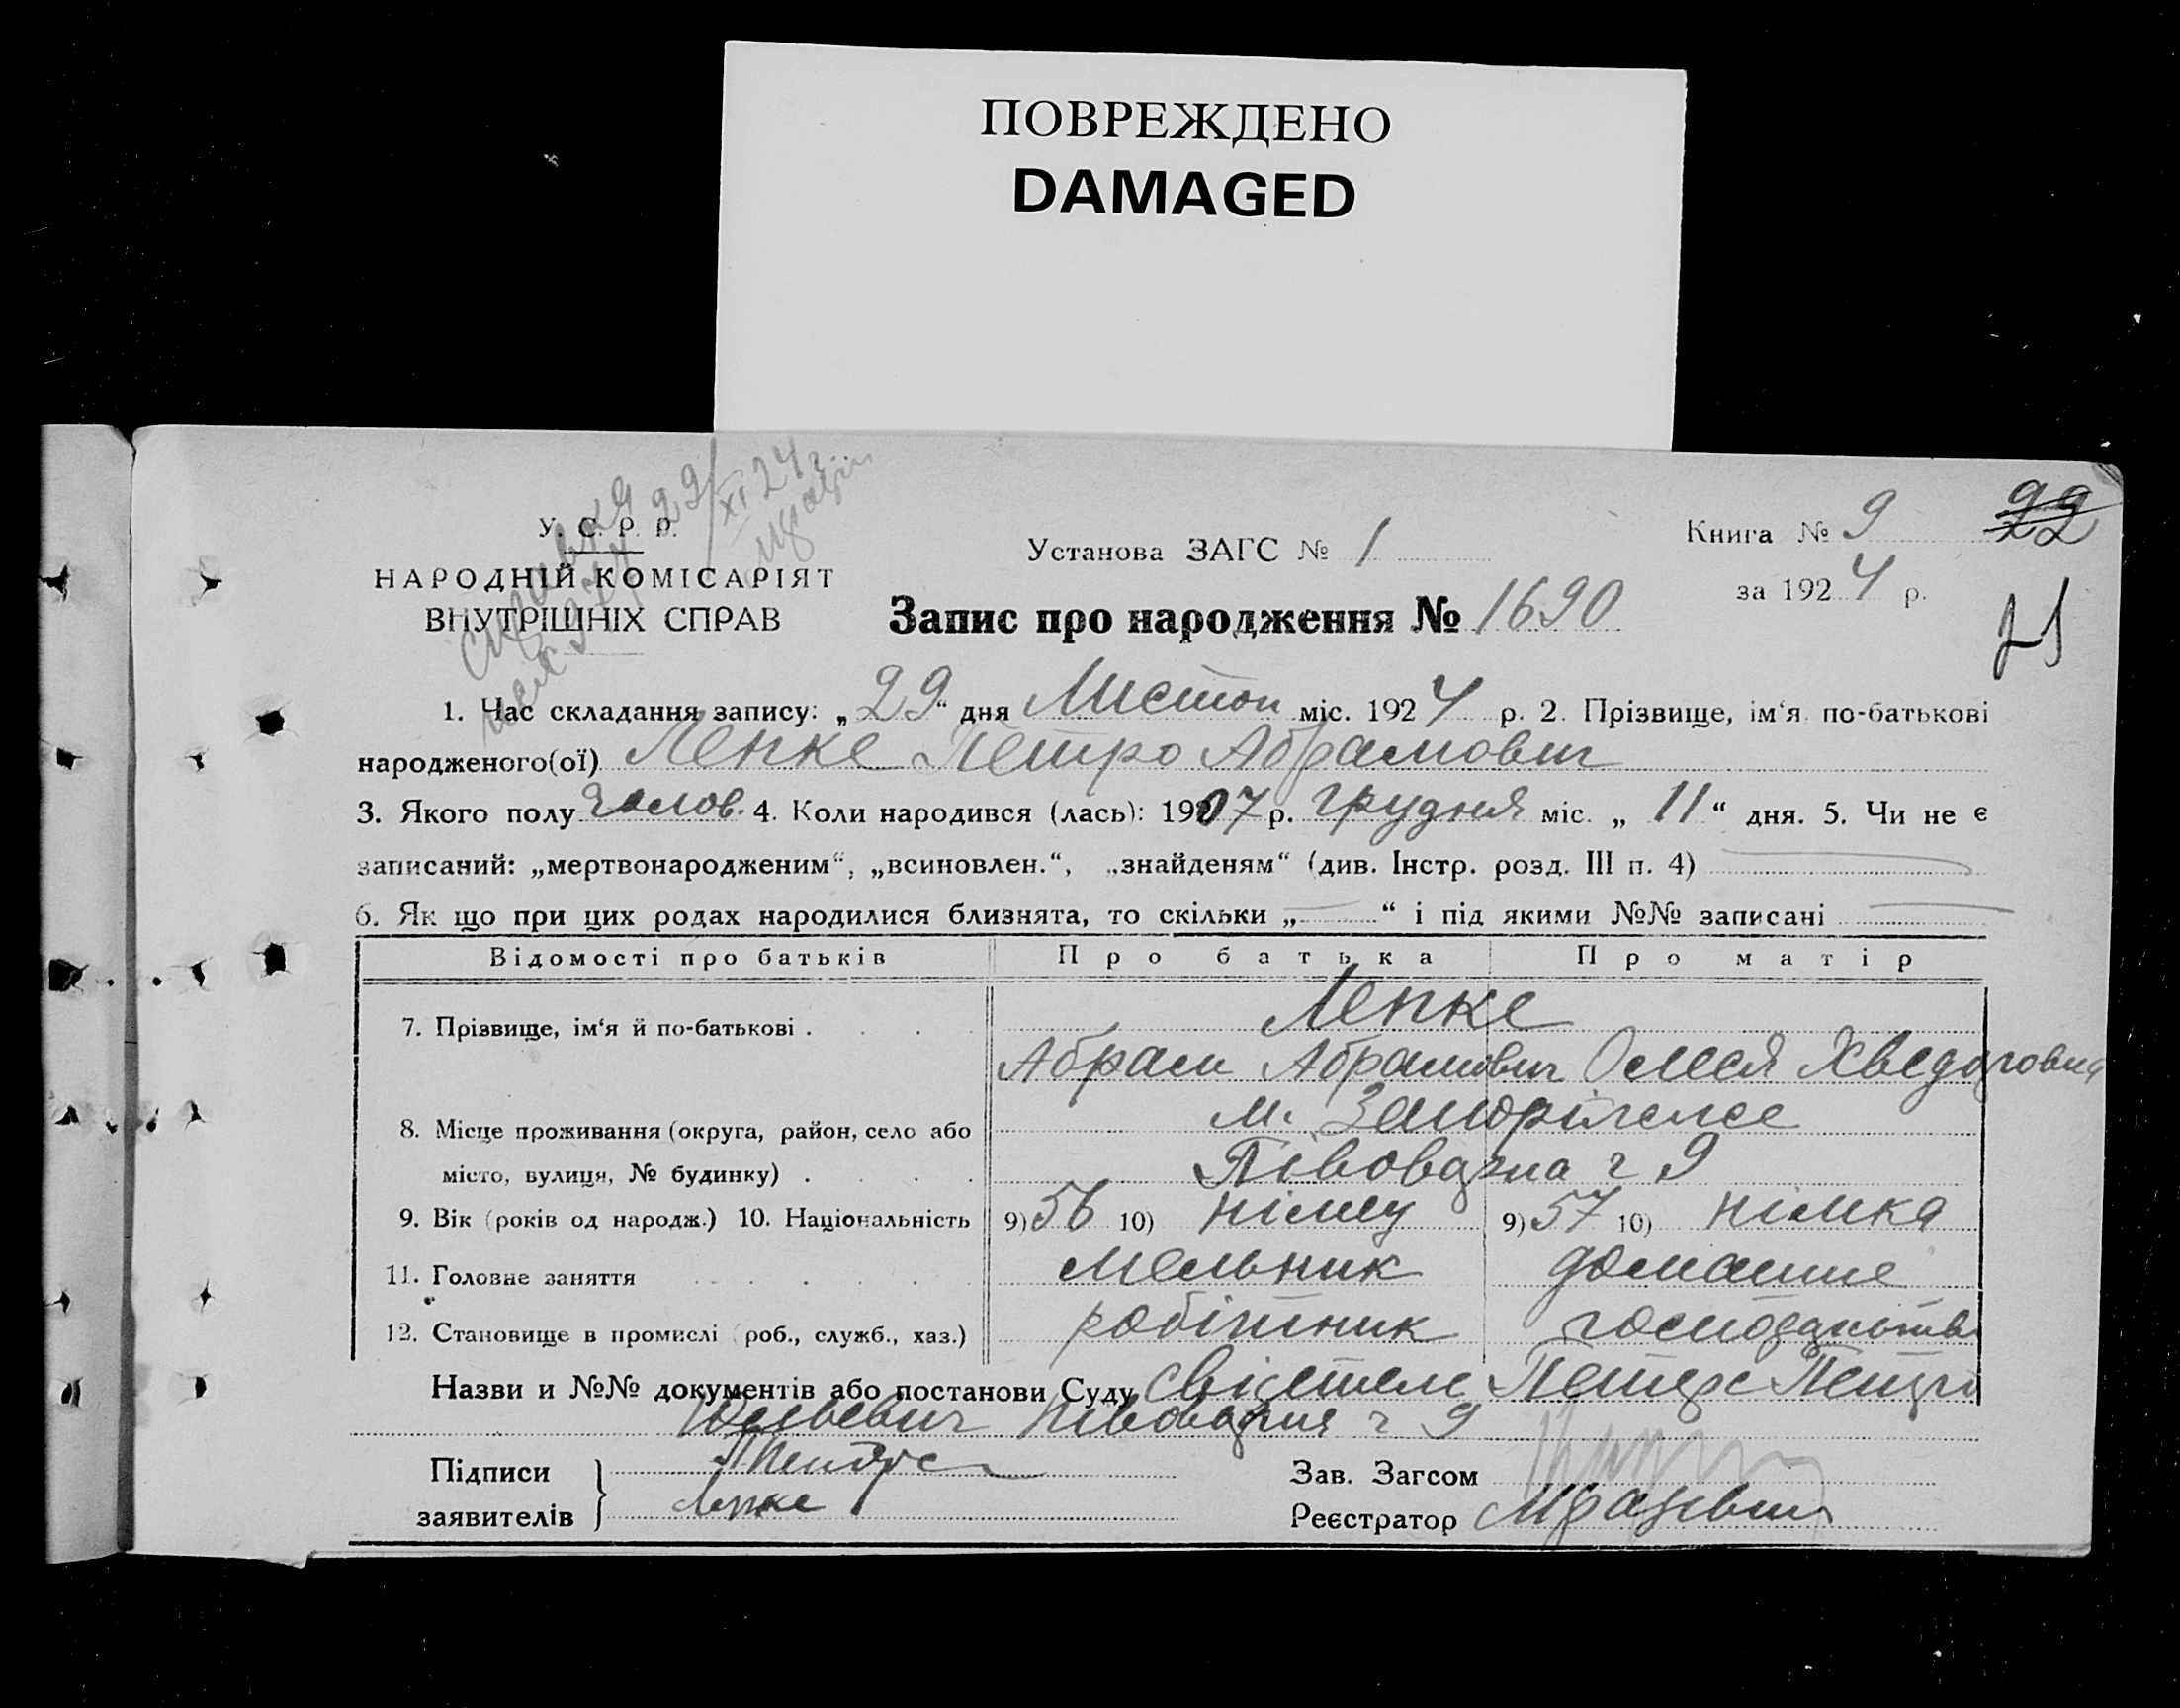 ПОВРЕЖДЕНО
DAMAGED
29/XI 24 г.
У. С. Р. Р.
НАРОДНІЙ КОМІСАРІЯТ
ВНУТРІШНІХ СПРАВ
Установа ЗАГС № 1
Книга № 9
22
за 1924 р.
Запис про народження № 1690
21
1. Час складання запису: „29“ дня Листоп міс. 1924 р. 2. Прізвище, ім‘я по-батькові
народженого(ої) Лепке Петро Абрамович
3. Якого полу чолов. 4. Коли народився (лась): 1907 р. грудня міс. „11“ дня. 5. Чи не є
записаний: „мертвонародженим“, „всиновлен.“, „знайденям“ (див. Інстр. розд. III п. 4)
6. Як що при цих родах народилися близнята, то скільки „ “ і під якими №№ записані
Відомості про батьків Про батька Про матір
7. Прізвище, ім‘я й по-батькові . Лепке
Абрам Абрамович Олеся Хведоровна
8. Місце проживання (округа, район, село або м. Запоріжже
місто, вулиця, № будинку) . Півоварна ч 9
9. Вік (років од народж.) 10. Національність 9) 56 10) німец 9) 57 10) німка
11. Головне заняття мельник домашне
12. Становище в промислі (роб., служб., хаз.) робітник господарство
Назви и №№ документів або постанови Суду Свідетелі Петерс Петро
Півоварня ч 9
Підписи Петерс
заявителів Лепке
Зав. Загсом
Реєстратор